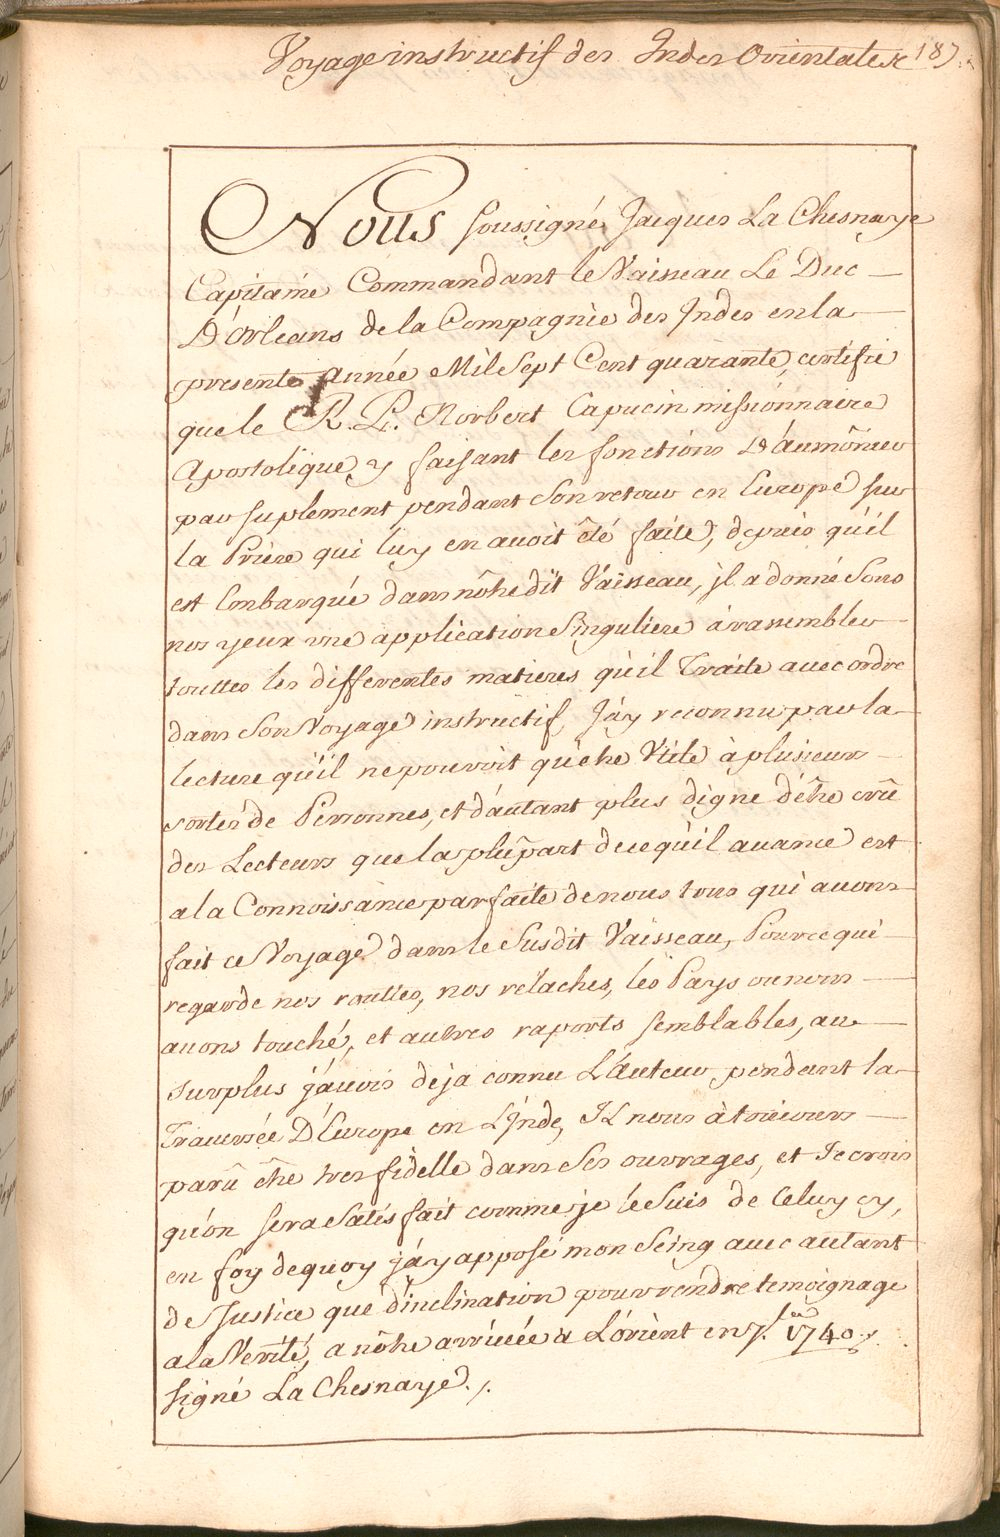 Voyage instructif des Indes Orientales 187.
Nous soussigné Jacques La Chesnaye
Capitaine Commandant le Vaisseau Le Duc
D'Orleans de la Compagnie des Indes en la
presente année Mil Sept Cent quarante, certifie
que le R. P. Norbert Capucin missionnaire
Apostolique y faisant les fonctions D'aumônier
par suplement pendant Son retour en Europe sur
la Prière qui luy en avoit êté faite, depuis qu'il
est Embarqué dans nôtre dit Vaisseau, jl a donné Sous
nos yeux une application Singuliere à rassembler
touttes les differentes matieres qu'il Traite avec ordre
dans Son Voyage instructif, J'ay reconnu par la
lecture qu'il ne pouvoit qu'être Utile à plusieurs
sortes de Personnes, et d'autant plus digne d'être crû
des Lecteurs que la plûpart de ce qu'il avance est
a la Connoissance parfaite de nous tous qui avons
fait ce Voyage dans le Susdit Vaisseau, Pour ce qui
regarde nos routtes, nos relaches, les Pays ou nous
avons touché, et autres raports semblables, au
surplus j'avois deja connu L'Auteur pendant la
Traversée D'Europe en L'Jnde, Il nous à toûjours
parû être tres fidelle dans Ses ouvrages, et Je crois
qu'on sera Satisfait comme je le Suis de Celuy cy,
en foy de quoy j'ay apposé mon Seing avec autant
de Justice que d'inclination pour rendre temoignage
a la Verité, a nôtre arrivée a L'órient en 7.bre 1740./.
signé La Chesnaye./.